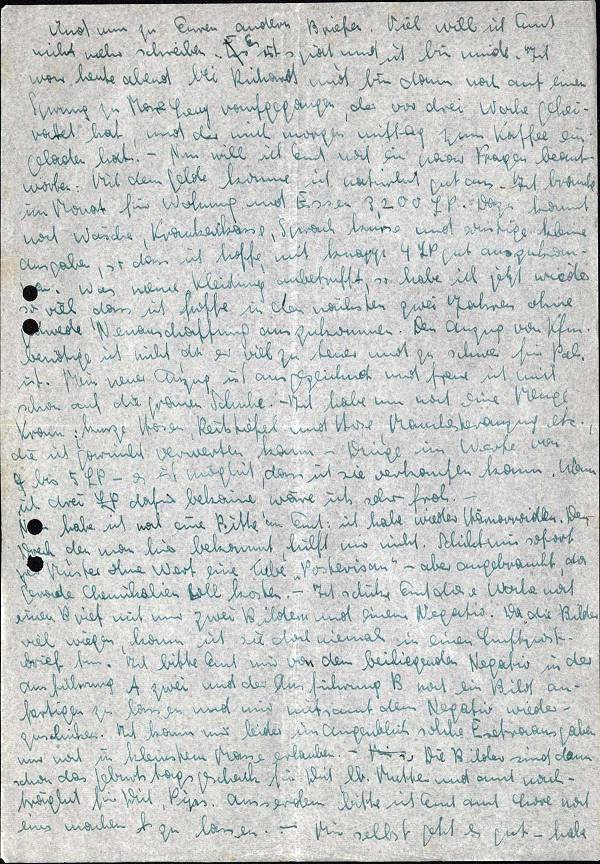 Und nun zu Euren andern Briefen. Viel will ich Euch
nicht mehr schreiben. Es ist spät und ich bin müde. Ich
war heute abend bei Richard und bin dann noch auf einen
Sprung zu heraufgegangen, der vor drei Woche gehei-
ratet hat, und der mich morgen mittag zum Kaffee ein-
geladen hat. – Nun will ich Euch noch ein paar Fragen beant-
worten. Mit dem Gelde komme ich natürlich gut aus. Ich brauche
im Monat für Wohnung und Essen 3,200 LP. Dazu kommt
noch Wäsche, Krankenkasse, Sprach kurse und sonstige kleine
Ausgaben, so dass ich hoffe, mit knapp 4 LP gut auszukom-
men. Was meine Kleidung anbetrifft, so habe ich jetzt wieder
so viel dass ich hoffe in den nächsten zwei Jahren ohne
jedwede Neuanschaffung auszukommen. Den Anzug von Kfm.
benötige ich nicht da er viel zu teuer und zu schwer für Pal.
ist. Mein neuer Anzug ist ausgezeichnet und freue ich mich
schon auf die grauen Schuhe. – Ich habe nun noch eine Menge
Kram: kurze Hosen, Reitstiefel und Hose, Manchesteranzug etc.,
die ich garnicht verwerten kann – Dinge im Werte von
4 bis 5 LP – es ist möglich, dass ich sie verkaufen kann. Wenn
ich drei LP dafür bekäme wäre ich sehr froh. –
Nun habe ich noch eine Bitte an Euch: ich habe wieder Hämorrhoiden. Der
Dreck den man hier bekommt hilft mir nicht. Schickt mir sofort
per Muster ohne Wert eine Tube „Posterisan“ – aber angebraucht, da
gerade Chemikalien Zoll kosten. – Ich schicke Euch diese Woche noch
einen Brief mit nur zwei Bildern und einem Negativ. Da die Bilder
viel wiegen, kann ich sie doch niemal in einen Luftpost-
brief tun. Ich bitte Euch mir von dem beiliegenden Negativ in der
Ausführung A zwei und der Ausführung B noch ein Bild an-
fertigen zu lassen und mir mitsamt dem Negativ wieder-
zuschicken. Ich kann mir leider im Augenblick solche Extraausgaben
nur noch in kleinstem Masse erlauben – Die Bilder sind dann
schon das Geburtstagsgeschenk für Dich lb. Mutter und auch nach-
träglich für Dich, Pips. Ausserdem bitte ich Euch auch noch
eins machen zu lassen. – Mir selbst geht es gut – habe